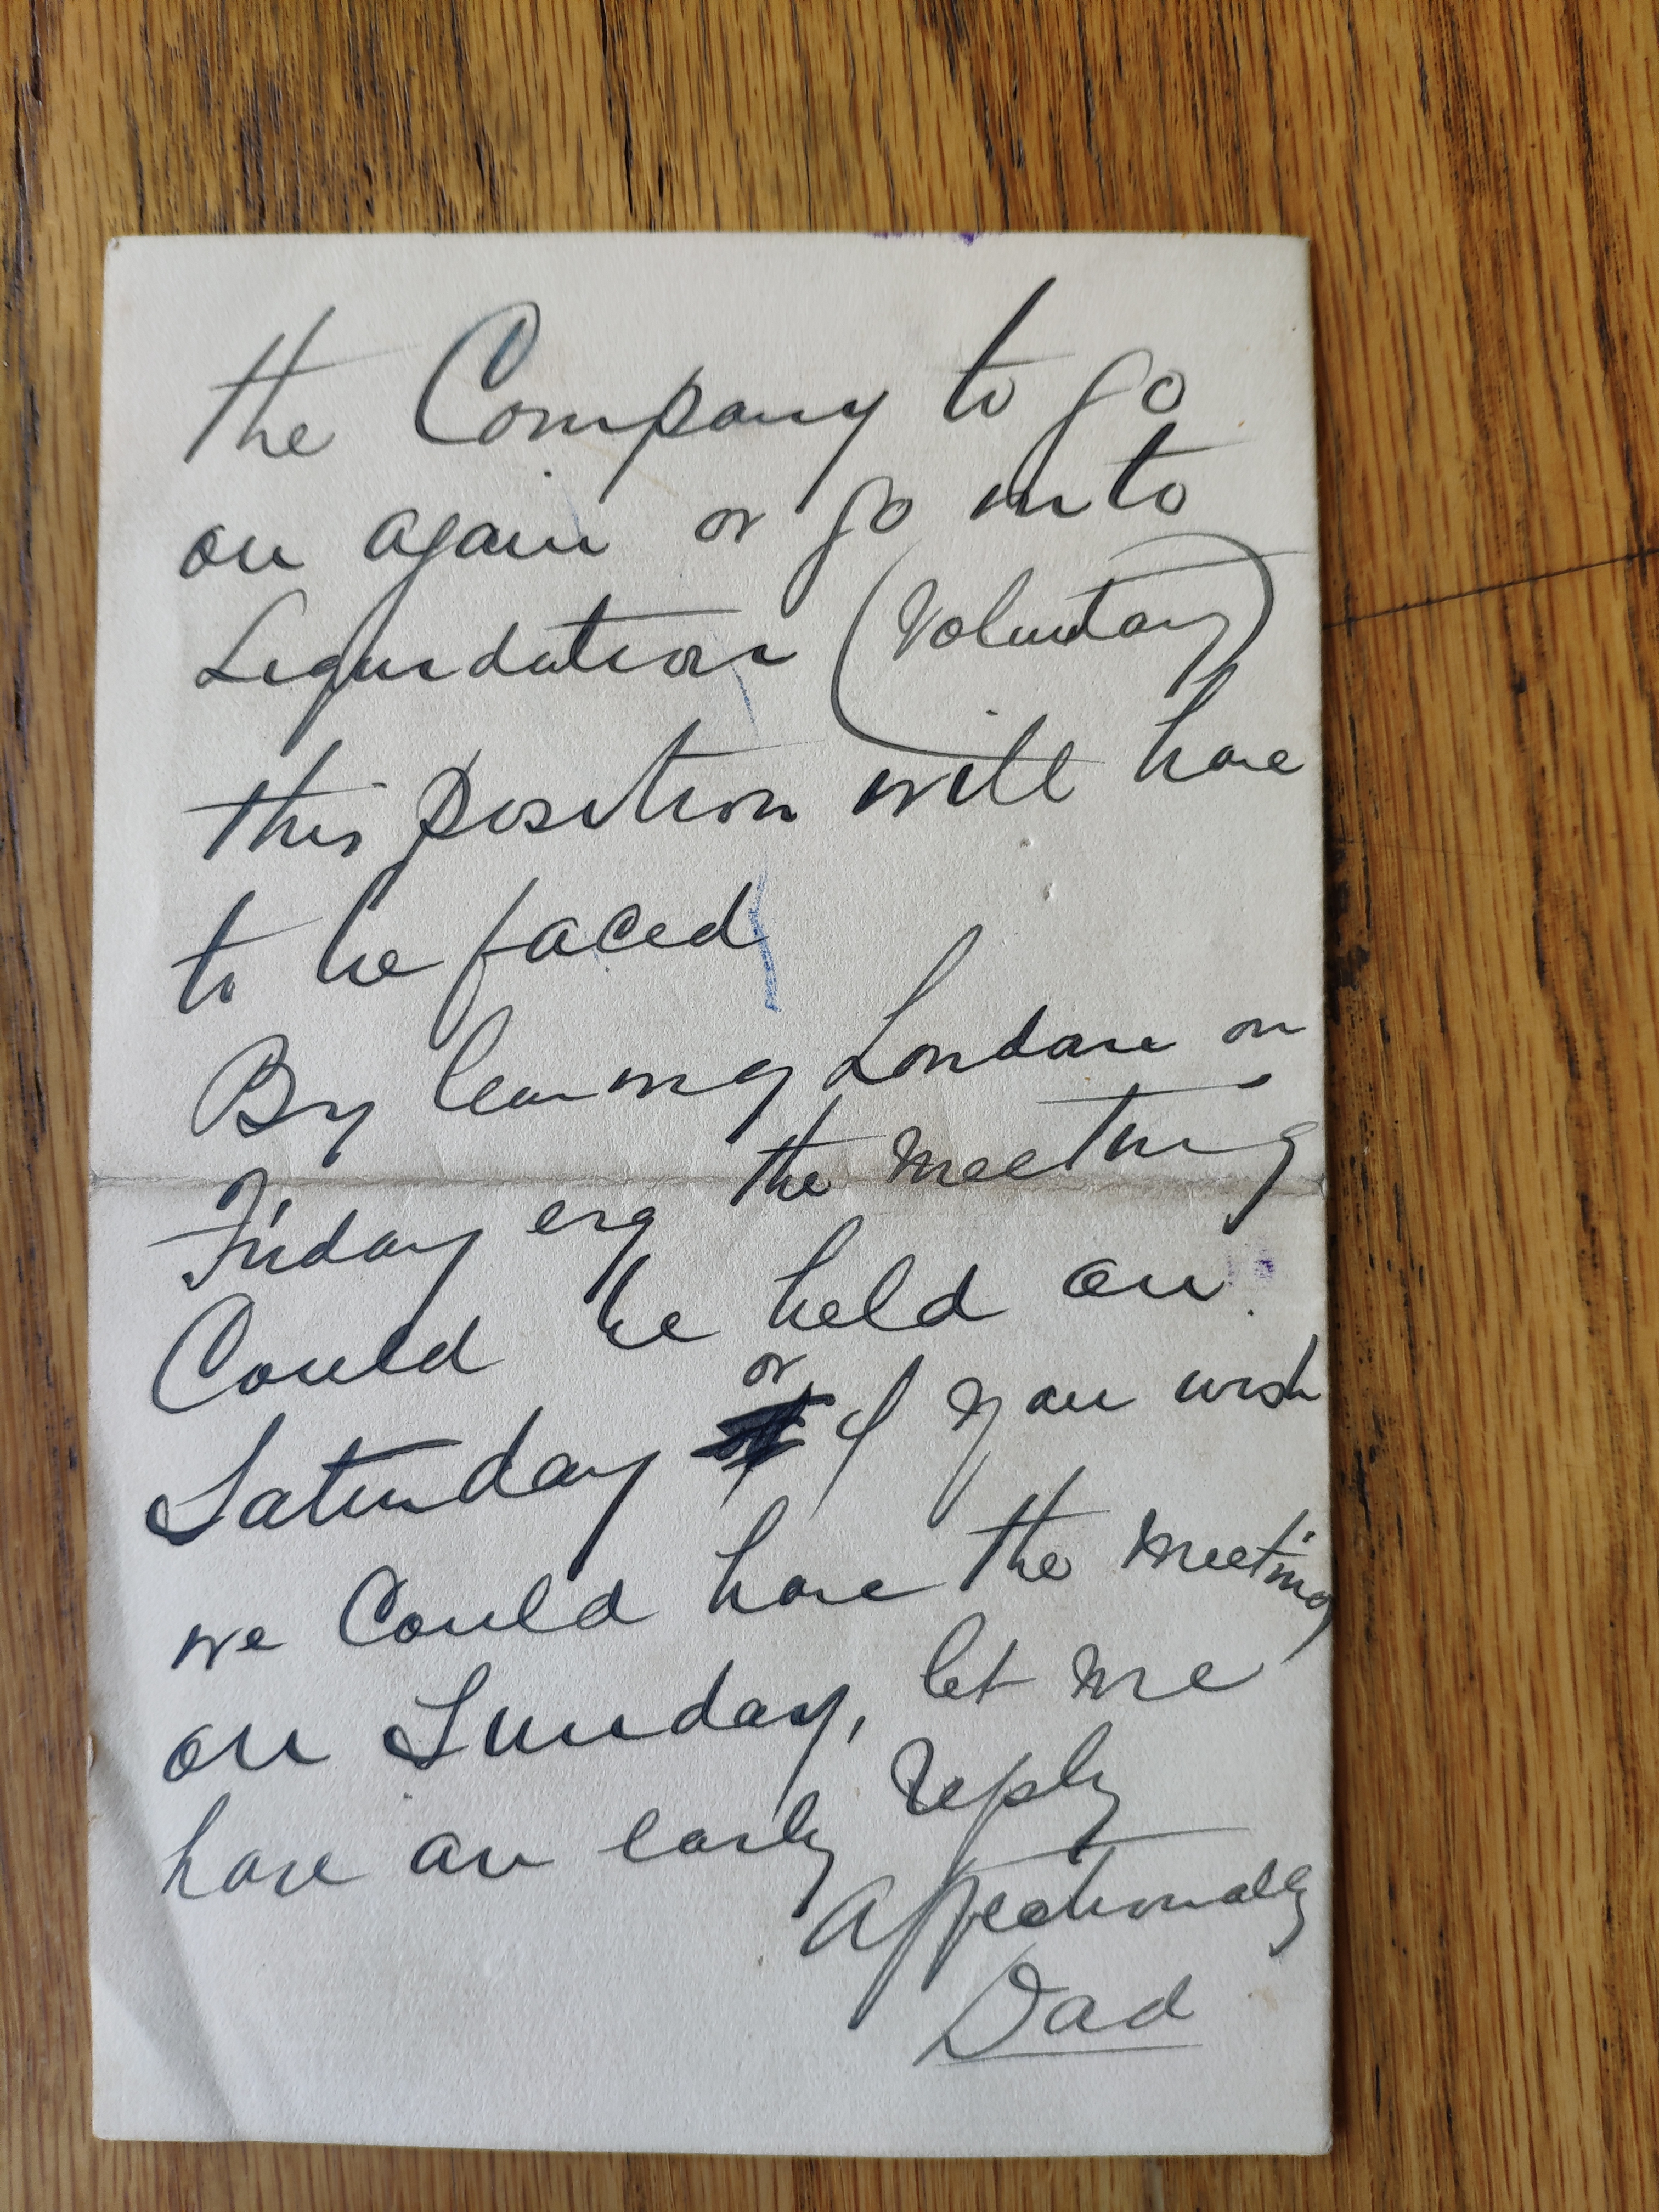 the Company to go
on again or go into
Liquidation (Voluntary)
this position will have
to be faced
By leaving London on
Friday evg the meeting
Could be held on
Saturday or if you wish
we Could have the meeting
on Sunday, let me
have an early reply
Affectionately
Dad